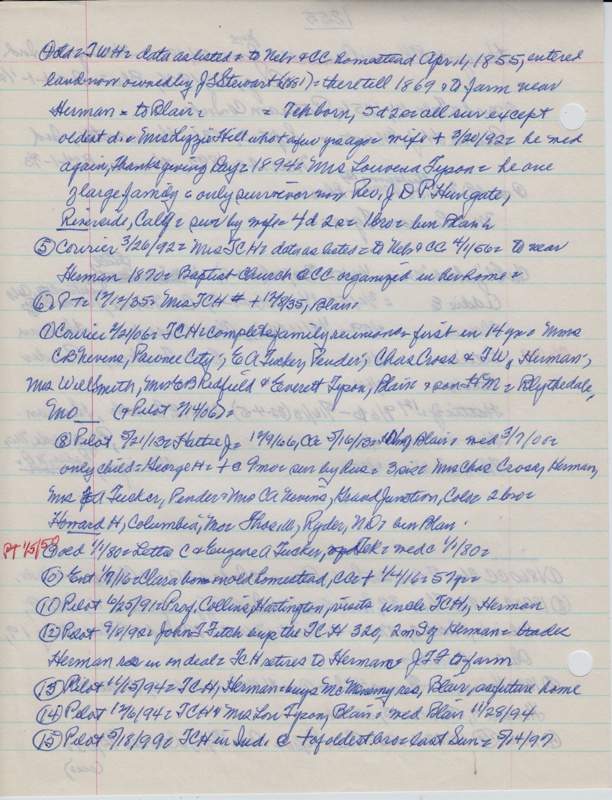 data as listed = to Nebr & CC homestead Apr. 4, 1855, entered
land now owned by J S Stewart (1881) = there till 1869 = to farm near
Herman = to Blair = 7 ch born, 5 d 2 s = all sur except
oldest d. = Mrs Lizzie Hill who + a few yrs ago = wife + 3/20/92 = he med
again, Thanksgiving Day = 1894 = Mrs Louvena Tyson = he one
of large family = only survivor now Rev. J D P Hungate,
Riverside, Calif = sur by wife = 4 d 2 s = 1 bro = bur Blair
⑤ Courier 3/26/92 = Mrs TCH = data as listed = to Nebr & CC 4/1/56 = to near
Herman 1870 = Baptist Church @ CC organized in der home =
⑥ 12/12/35 = Mrs TCH + 12/8/35, Blair
⑦ Courier 6/21/06 = TCH = complete family reunion = first in 14 yr = Mmes
C B Nevens, Pawnee City; E A Tucker, Pender; Chas Cross & TW, Herman;
Mrs Will Smith, Mrs E B Redfield & Everett Tyson, Blair = son H M = Blythedale,
Mo (+ Pilot 7/4/06) =
⑧ Pilot 5/21/13 = Hattie J = 12/9/66, CC 5/16/13 = Blair = med 3/7/00 =
only child = George H = + @ 9 mo = sur by hus = 3 sis = Mrs Chas Cross, Herman,
Mrs E A Tucker, Pender = Mrs C A Nevens, Grand Junction, Colo = 2 bro =
Howard H, Columbia, Mo = Ryder, ND = bur Blair
Pt 1/5/50
⑨ oed 1/1/80 = Lettie C & Eugene A Tucker, = med c 1/1/80 =
⑩ Ent 1/7/16 = Clara born on old homestead, CC + 1/4/16 = 57 yr =
⑪ Pilot 6/25/91 = Prof. Collins, Hartington, visits uncle TCH, Herman
⑫ Pilot 9/8/92 = John T Fitch buys the TCH 320, 2 m S of Herman = trades
Herman res in on deal = TCH retires to Herman = JTF to farm
⑬ Pilot 11/15/94 = TCH, Herman = buys McMenemy res, Blair, as future home
⑭ Pilot 12/6/94 = TCH & Mrs Lou Tyson, Blair = med Blair 11/28/94
⑮ Pilot 5/18/99 = TCH in Ind. @ + of oldest bro = last Sun = 5/14/99